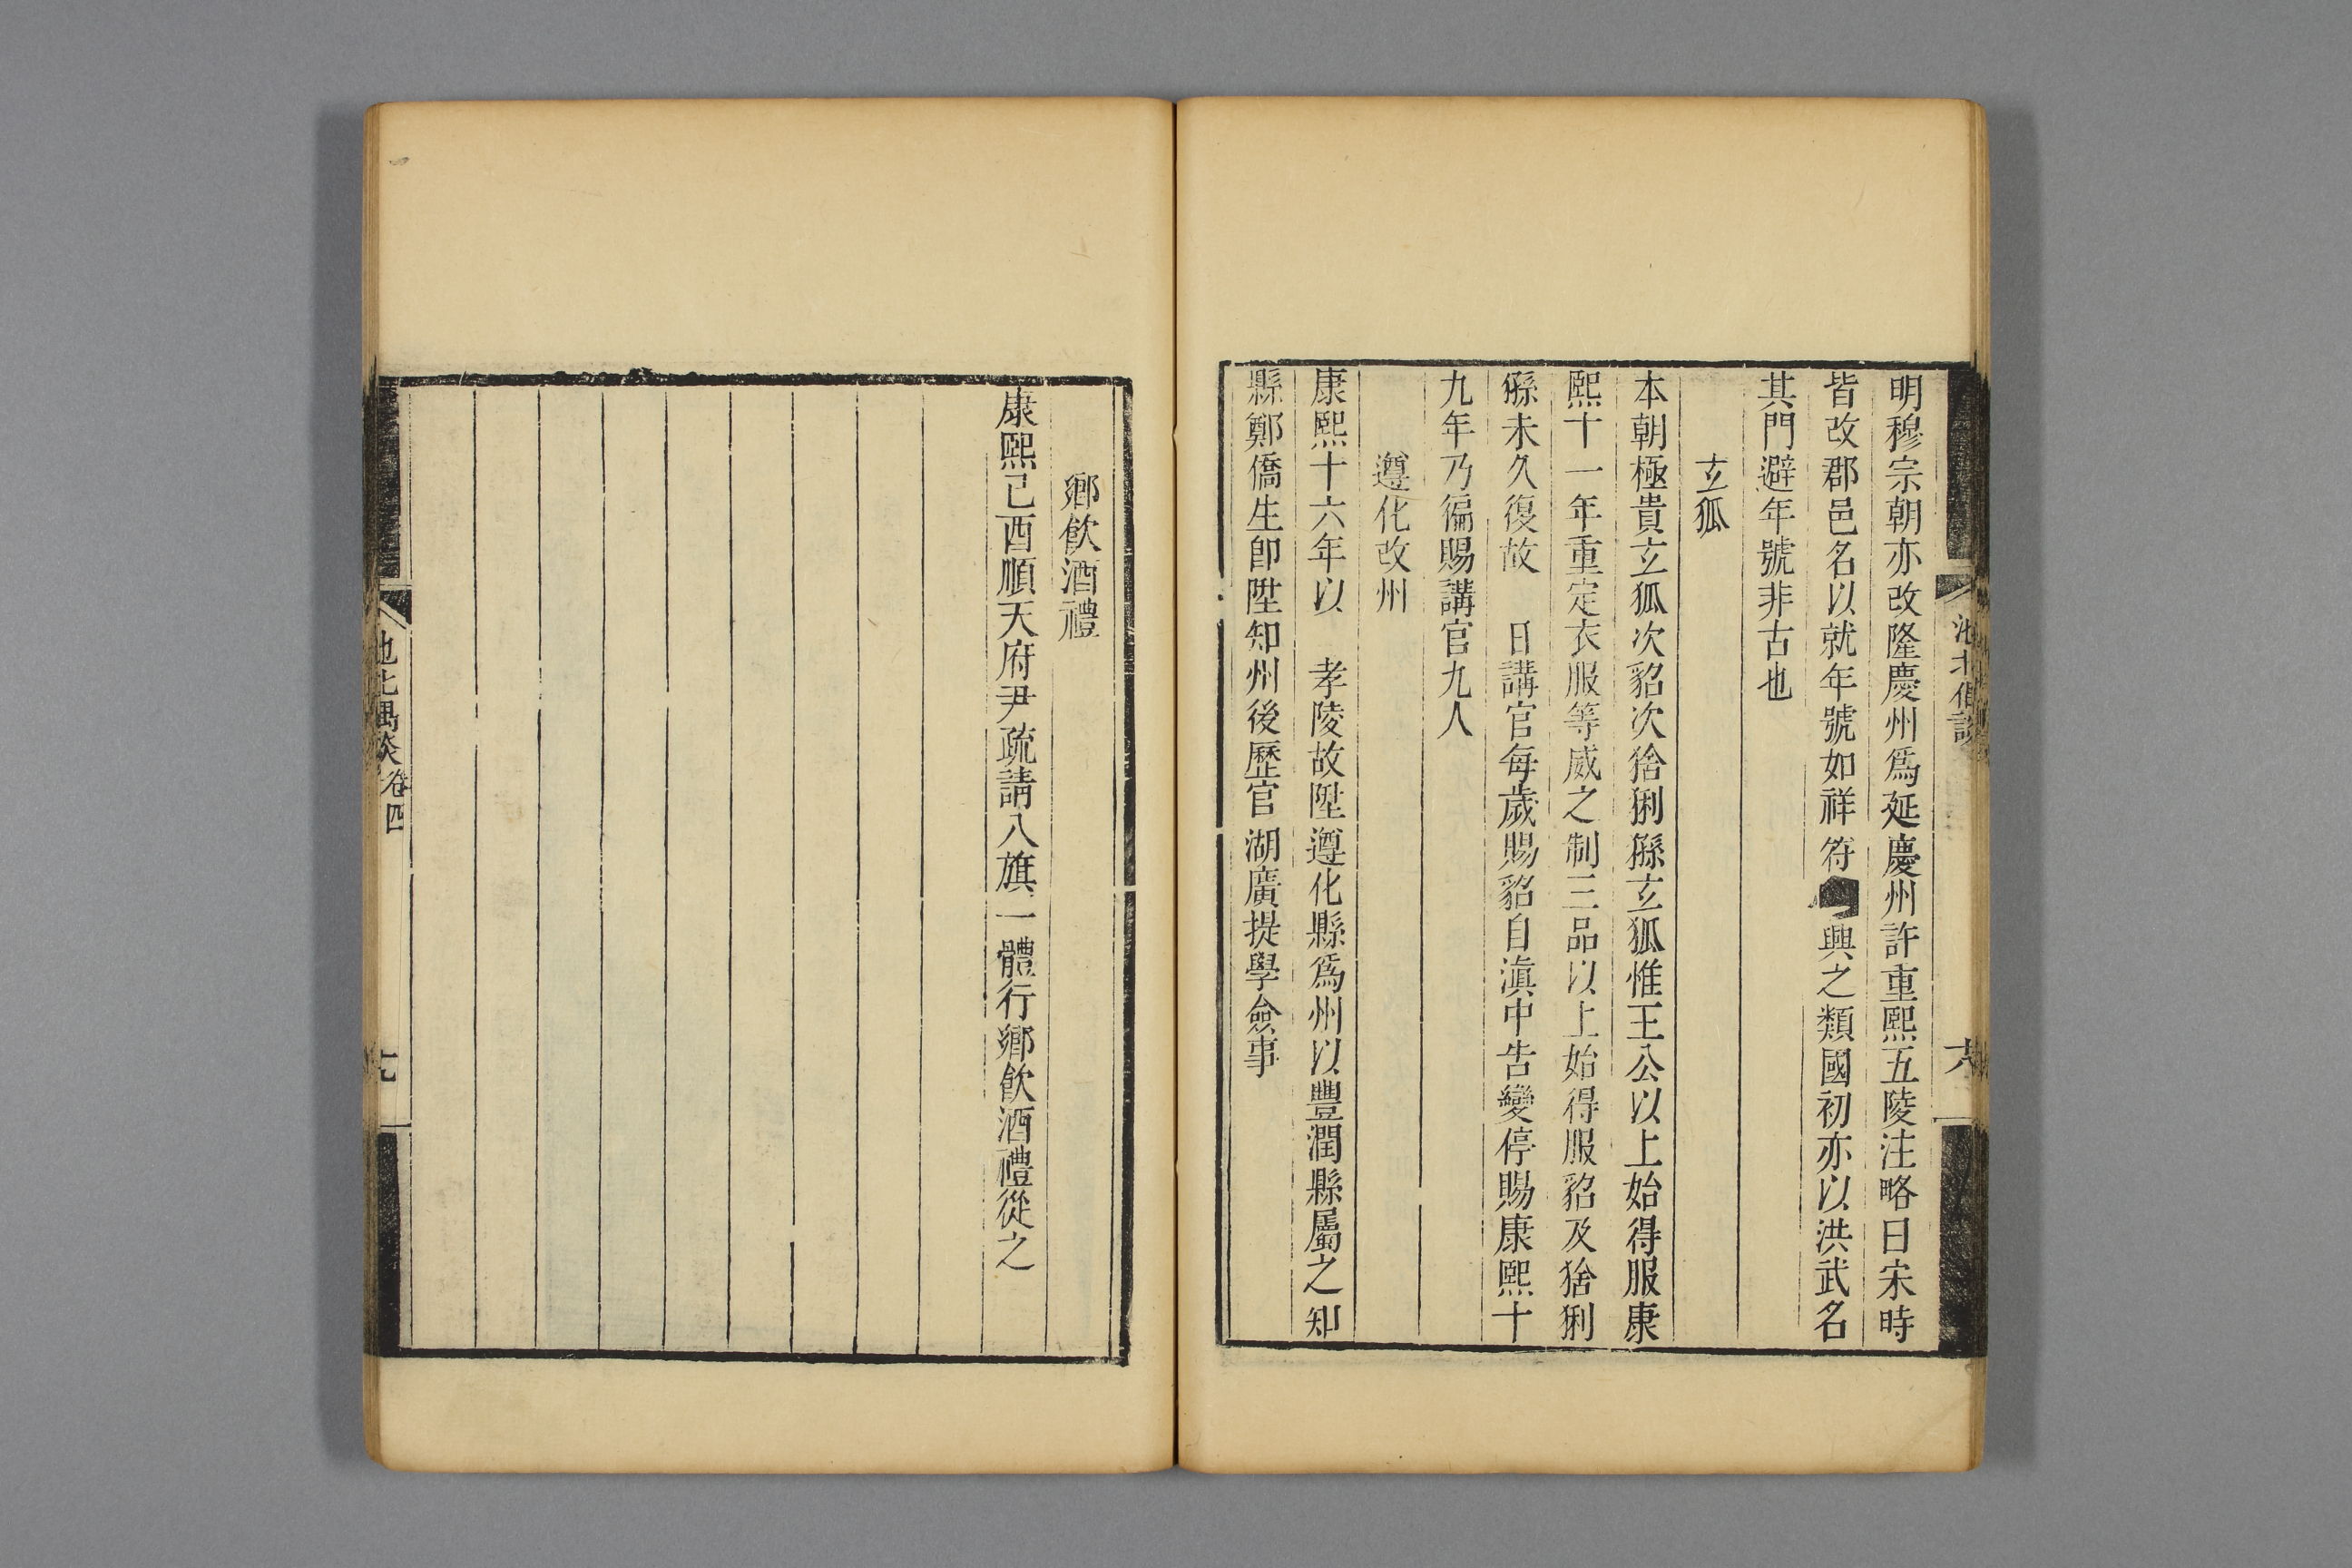 明穆宗朝亦改隆慶州爲延慶州許重熙五陵注略曰宋時
皆改郡邑名以就年號如祥符興之類國初亦以洪武名
其門避年號非古也
玄狐
本朝極貴玄狐次貂次猞猁猻玄狐惟王公以上始得服康
熙十一年重定衣服等威之制三品以上始得服貂及猞猁
猻未久復故　日講官每歲賜貂自滇中告變停賜康熙十
九年乃徧賜講官九人
遵化改州
康熙十六年以　孝陵故陞遵化縣爲州以豐潤縣屬之知
縣鄭僑生卽陞知州後歷官湖廣提學僉事
鄉飲酒禮
康熙己酉順天府尹疏請八旗一體行鄉飲酒禮從之
池北偶談 卷四